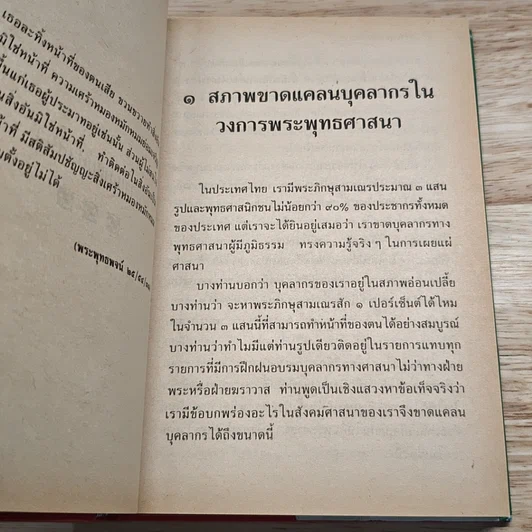 เธอละทิ้งหน้าที่ของตนเสีย ขวนขวายทำสิ่ง
มิใช่หน้าที่ ความเศร้าหมองหมักหมม
ขึ้นแก่เธอผู้ประมาทอยู่เช่นนั้น ส่วนผู้ไม่
ในสิ่งอันมิใช่หน้าที่, ทำติดต่อในสิ่ง
ที่ มีสติสัมปชัญญะสิ่งเศร้าหมอง
ตั้งอยู่ไม่ได้
(พระพุทธพจน์ ๒๕/
๑ สภาพขาดแคลนบุคลากรใน
วงการพระพุทธศาสนา
ในประเทศไทย เรามีพระภิกษุสามเณรประมาณ ๓ แสน
รูปและพุทธศาสนิกชนไม่น้อยกว่า ๙๐% ของประชากรทั้งหมด
ของประเทศ แต่เราจะได้ยินอยู่เสมอว่า เราขาดบุคลากรทาง
พุทธศาสนาผู้มีภูมิธรรม ทรงความรู้จริง ๆ ในการเผยแผ่
ศาสนา
บางท่านบอกว่า บุคลากรของเราอยู่ในสภาพอ่อนเปลี้ย
บางท่านว่า จะหาพระภิกษุสามเณรสัก ๑ เปอร์เซ็นต์ได้ไหม
ในจำนวน ๓ แสนนี้ที่สามารถทำหน้าที่ของตนได้อย่างสมบูรณ์
บางท่านว่าทำไมมีแต่ท่านรูปเดียวติดอยู่ในรายการแทบทุก
รายการที่มีการฝึกฝนอบรมบุคลากรทางศาสนาไม่ว่าทางฝ่าย
พระหรือฝ่ายฆราวาส ท่านพูดเป็นเชิงแสวงหาข้อเท็จจริงว่า
เรามีข้อบกพร่องอะไรในสังคมศาสนาของเราจึงขาดแคลน
บุคลากรได้ถึงขนาดนี้